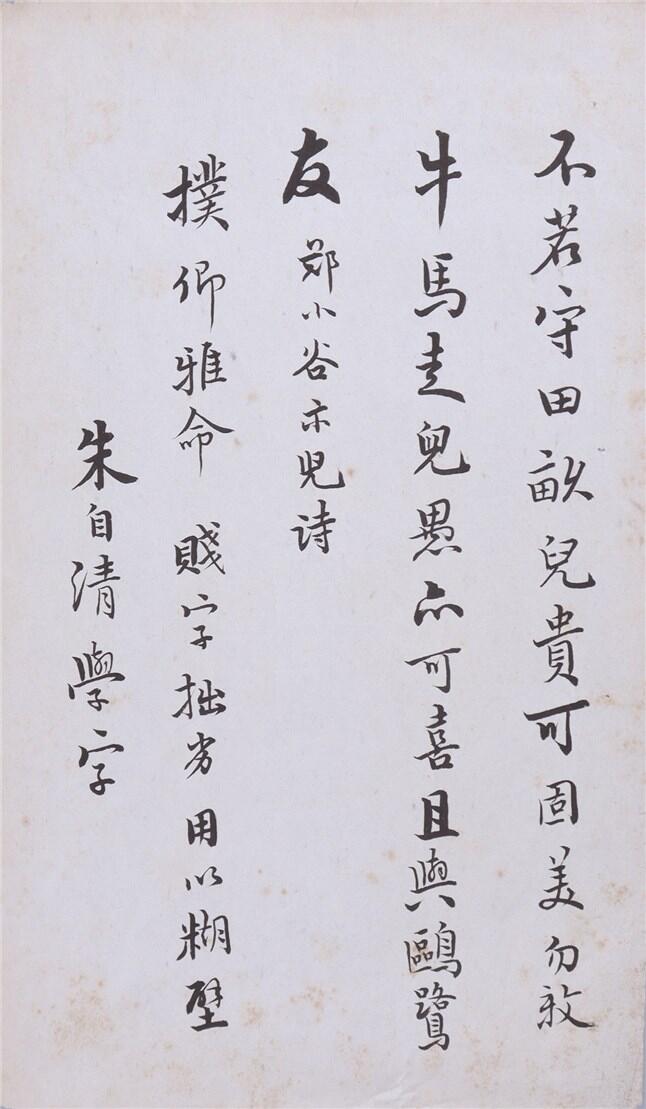 不若守田畝兒貴可固美勿放
牛馬走兒愚亦可喜且與鷗鷺
友 鄭小谷示兒詩
撲卿雅命 賤字拙劣用以糊壁
朱自清學字